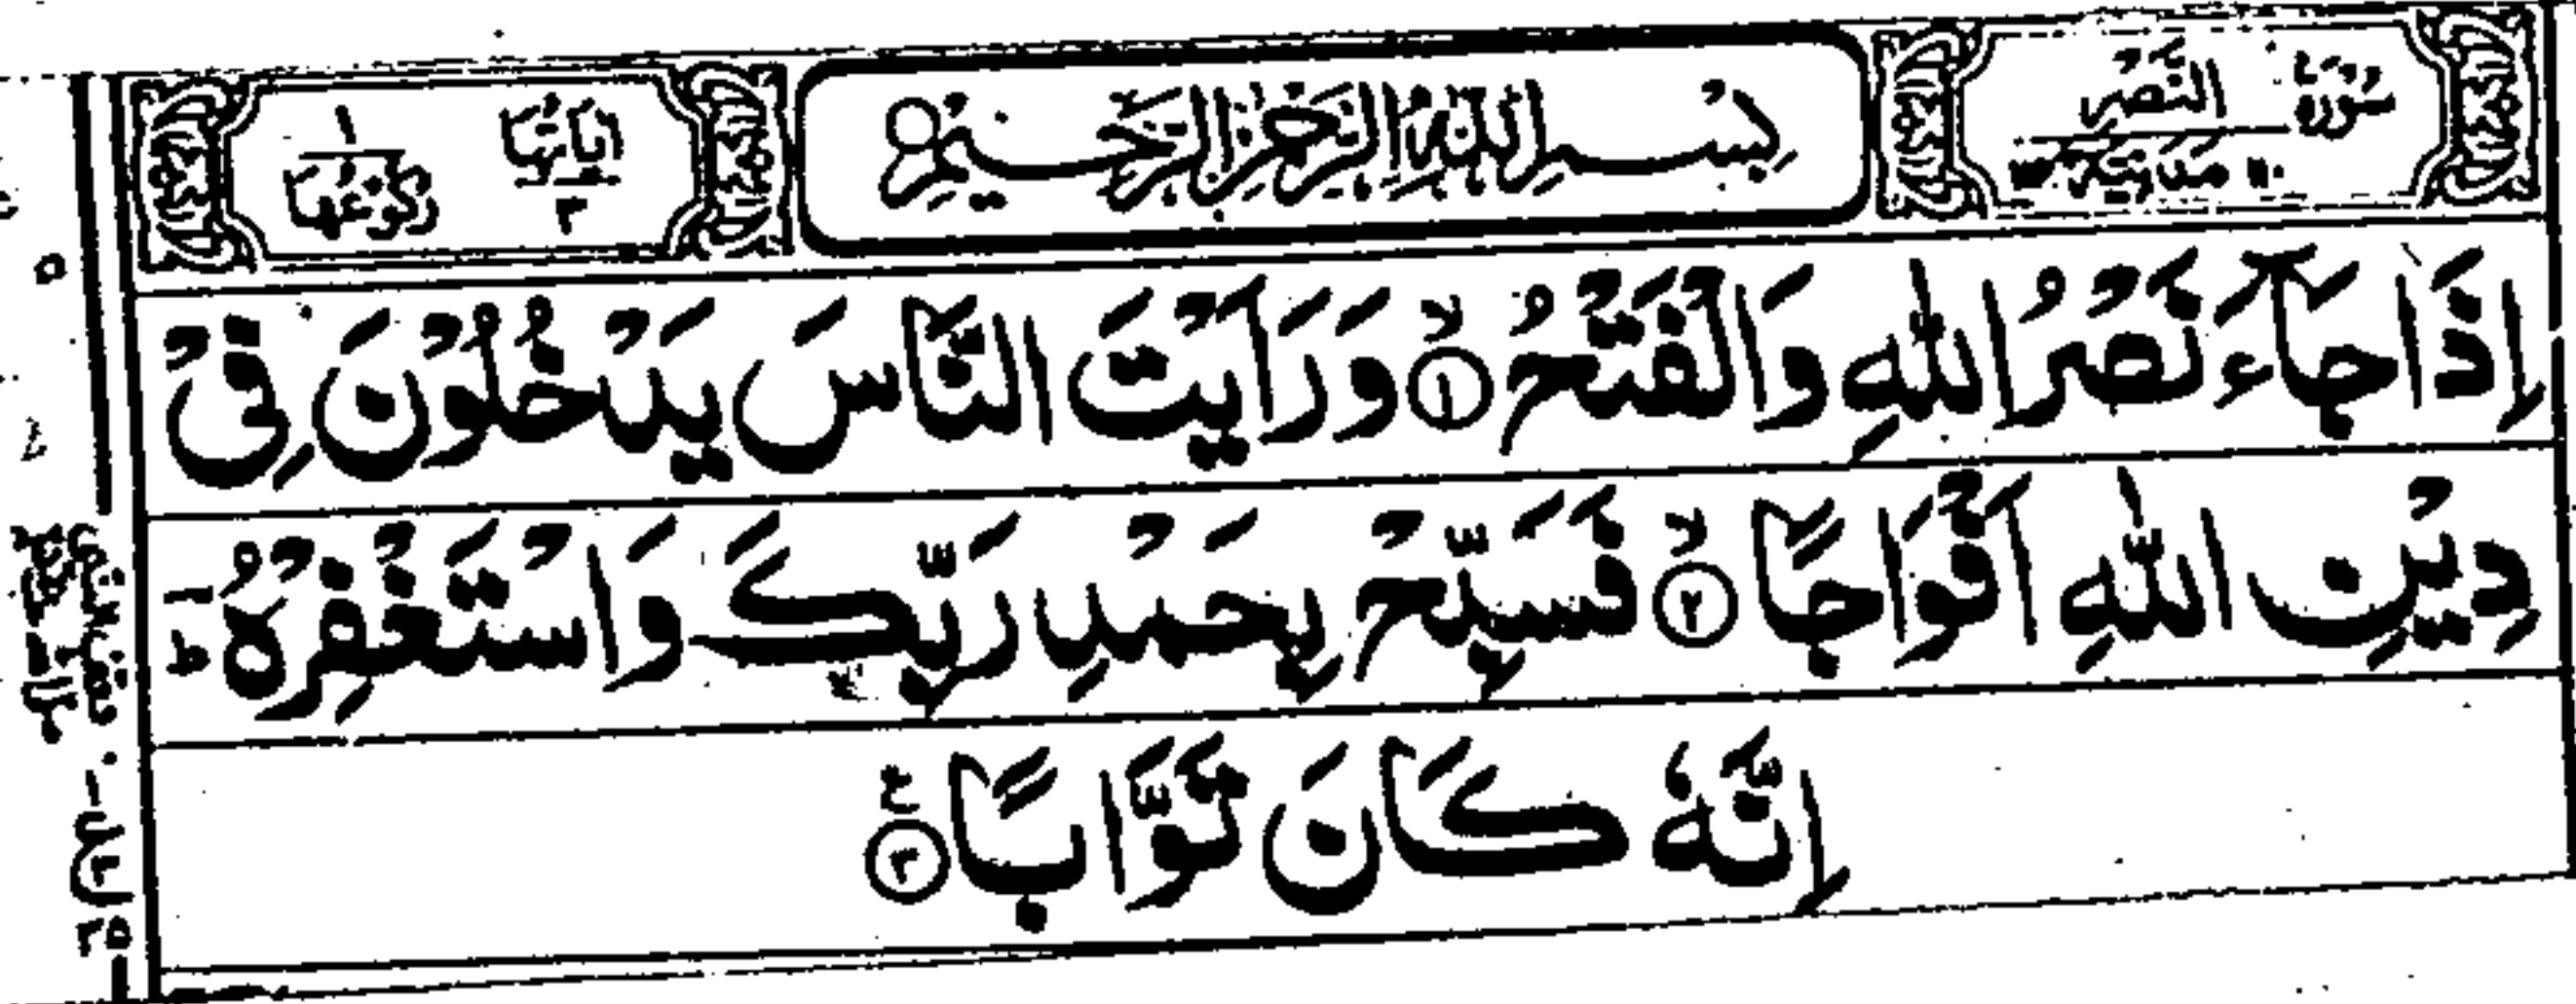 سُوْرَةُ النَّصْرِ مَدَنِيَّةٌ
بِسْمِ اللّٰهِ الرَّحْمٰنِ الرَّحِيْمِ
اٰيَاتُهَا ٣
رُكُوْعُهَا ١
اِذَا جَآءَ نَصْرُ اللّٰهِ وَالْفَتْحُ ۙ﴿١﴾ وَرَاَيْتَ النَّاسَ يَدْخُلُوْنَ فِيْ
دِيْنِ اللّٰهِ اَفْوَاجًا ۙ﴿٢﴾ فَسَبِّحْ بِحَمْدِ رَبِّكَ وَاسْتَغْفِرْهُ ؕ
اِنَّهٗ كَانَ تَوَّابًا ﴿٣﴾ ع
١
ع
٣
٣٥